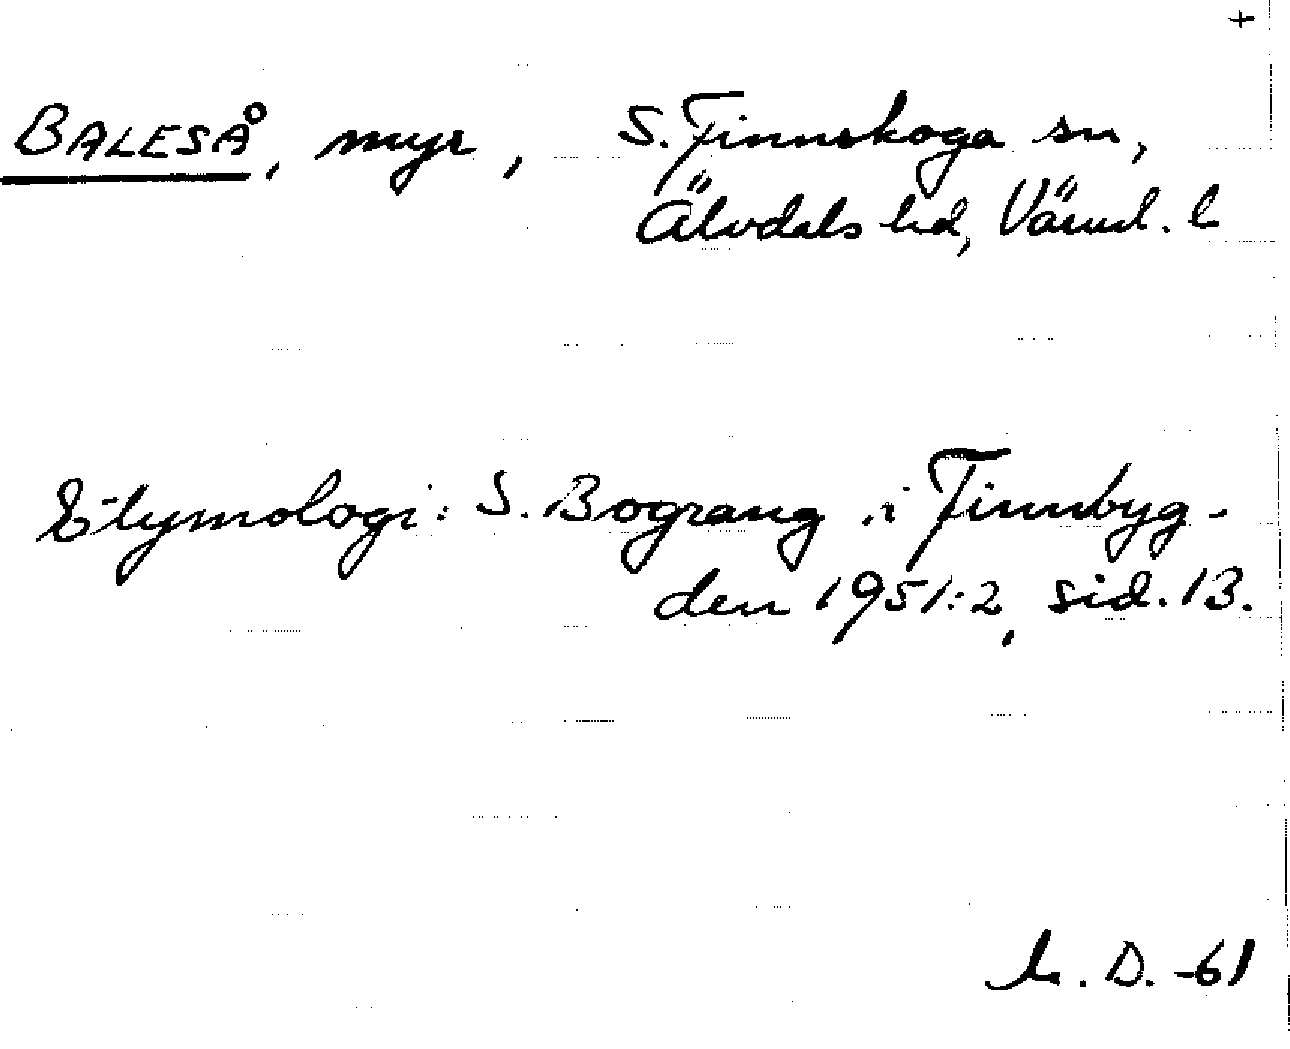 +
BALESÅ, myr, S. Finnskoga sn,
Älvdals hd, Värml. l
Etymologi: S. Bograng i Finnbyg-
den 1951:2, sid. 13.
D. -61